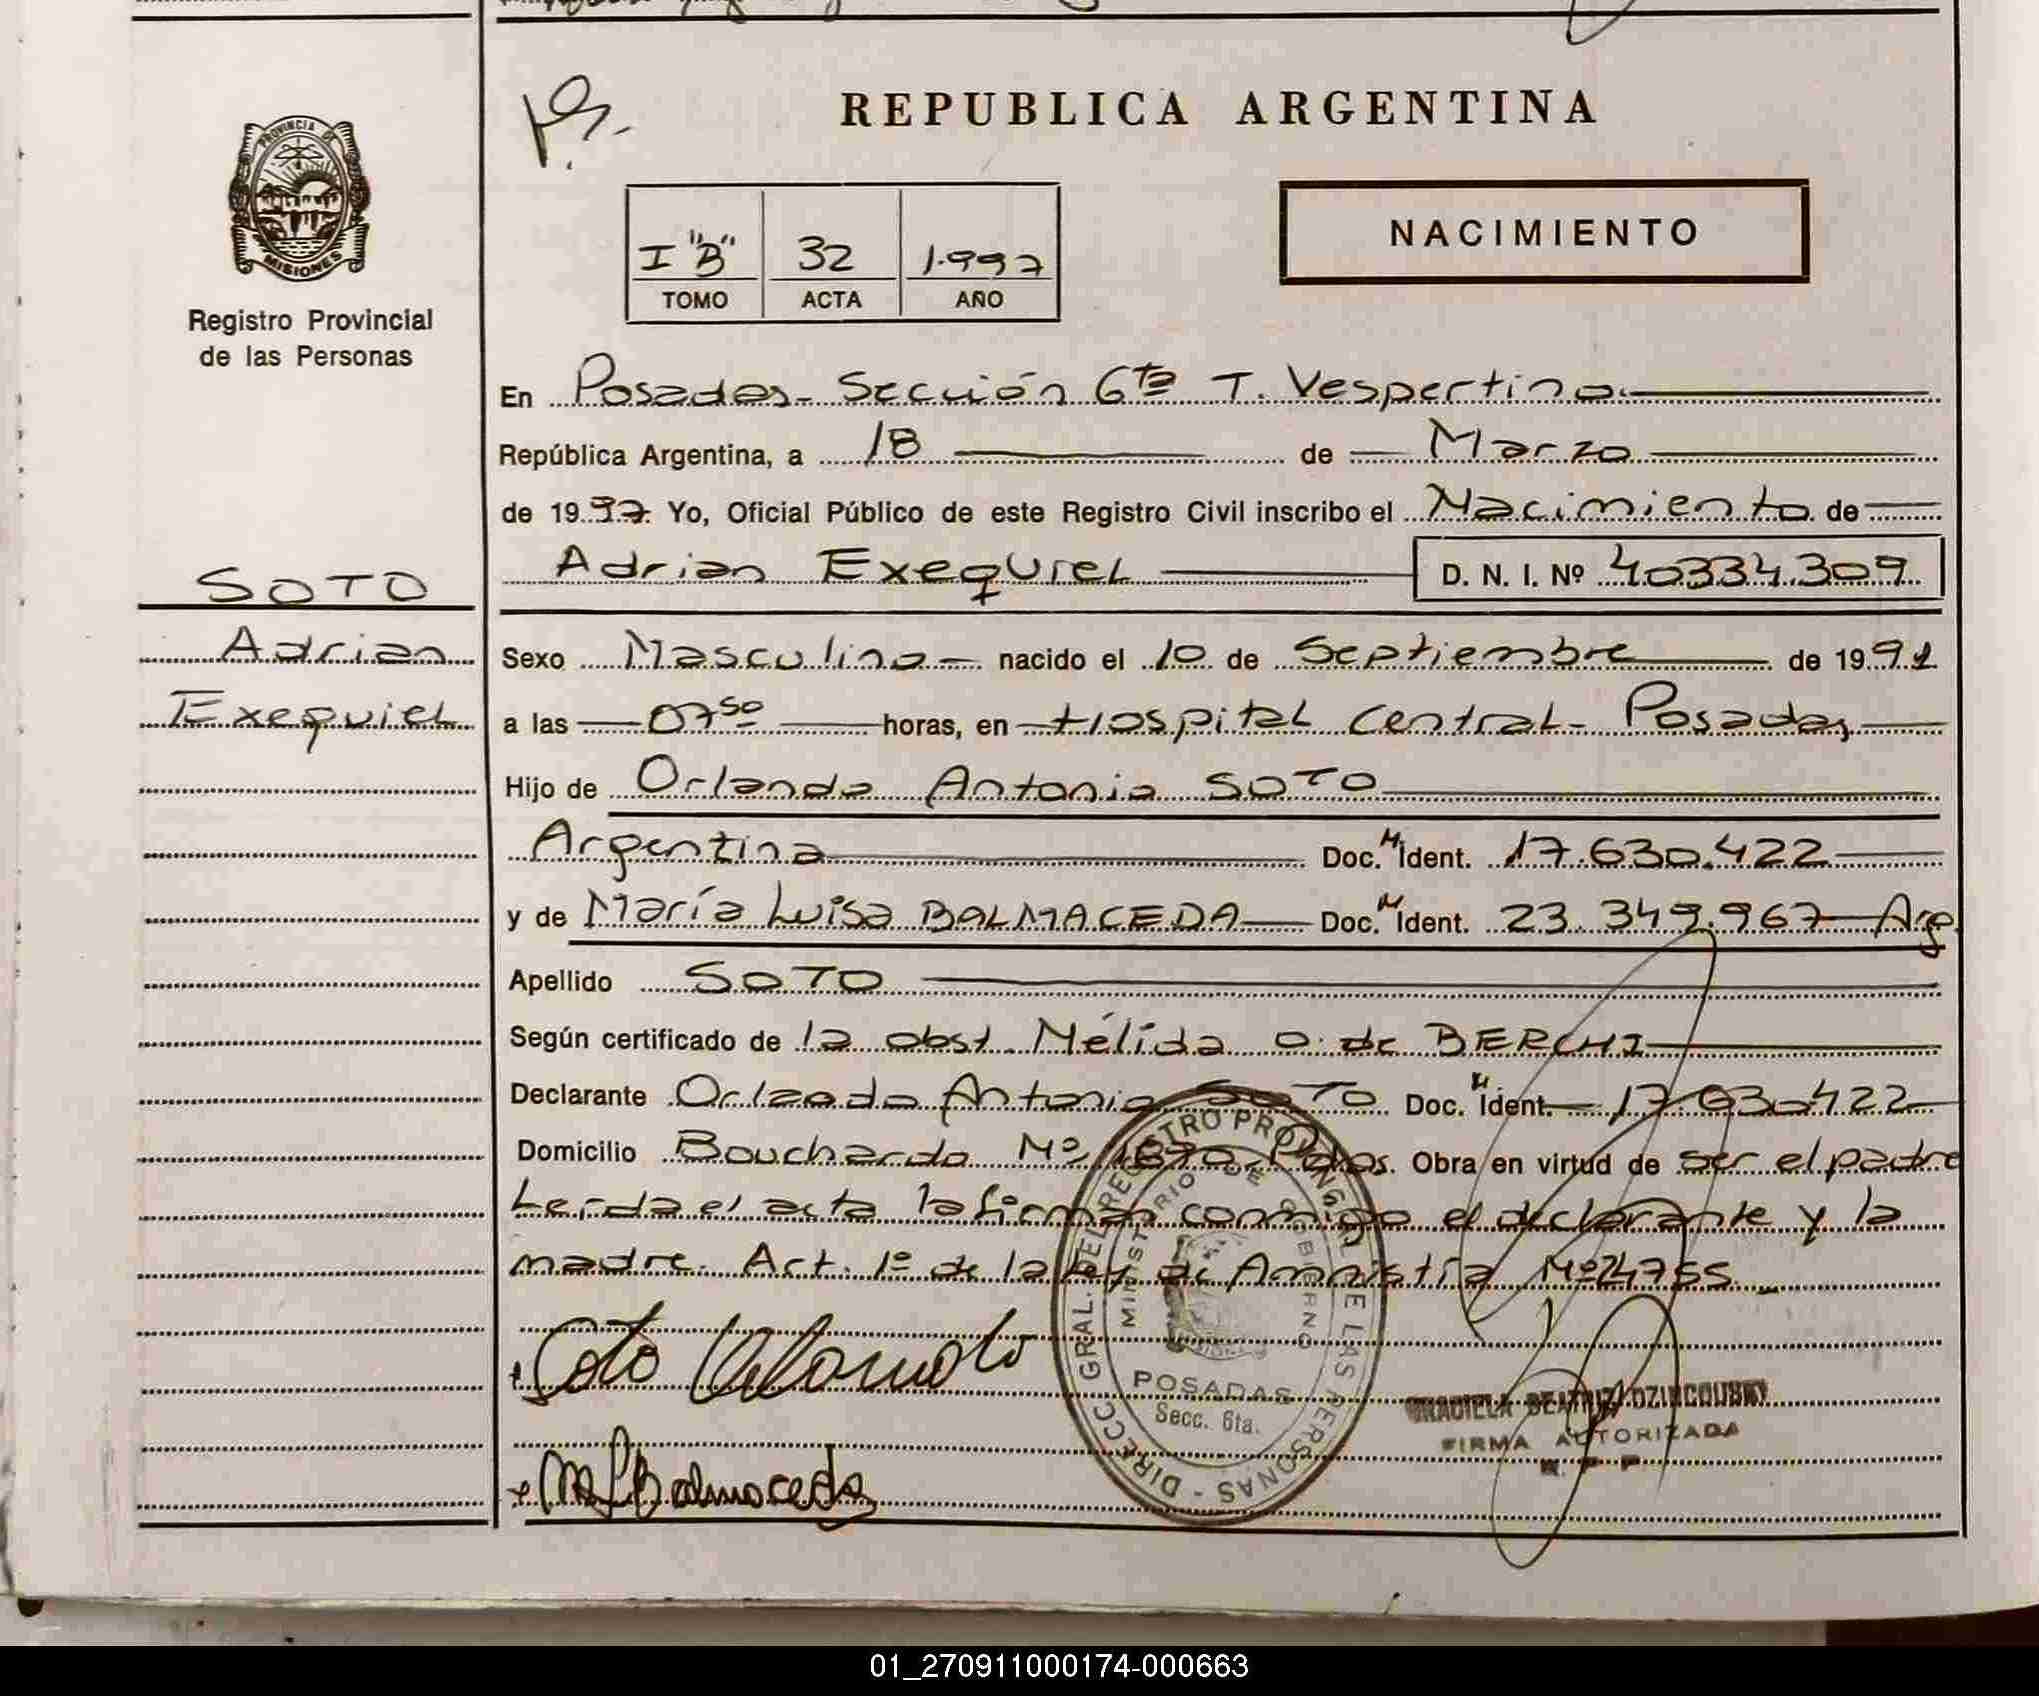 REPUBLICA ARGENTINA
PROVINCIA DE
MISIONES
Registro Provincial
de las Personas
I "B" 32 1.997
TOMO ACTA AÑO
NACIMIENTO
En Posadas - Sección 6ta T. Vespertino.
República Argentina, a 18 de Marzo
de 1997. Yo, Oficial Público de este Registro Civil inscribo el Nacimiento de
Adrian Exequiel D. N. I. Nº 40334.309
SOTO
Adrian
Exequiel
Sexo Masculino nacido el 10 de Septiembre de 1991
a las 07 50 horas, en Hospital Central - Posadas
Hijo de Orlando Antonio SOTO
Argentina Doc. N Ident. 17.630.422
y de María Luisa BALMACEDA Doc. N Ident. 23.349.967 Arg.
Apellido SOTO
Según certificado de la obst. Nélida O. de BERCHI
Declarante Orlando Antonio SOTO Doc. N Ident. 17.630.422
Domicilio Bouchardo Nº 1870 Pdas. Obra en virtud de ser el padre
Leida el acta la firman conmigo el declarante y la
madre. Act. 1º de la Ley de Amnistía Nº 24755.
Soto Orlando
M L Balmaceda
DIRECC. GRAL. DEL REGISTRO PROVINCIAL DE LAS PERSONAS -
MINISTERIO DE GOBIERNO
MISIONES
POSADAS
Secc. 6ta.
GRACIELA BEATRIZ DZINCOUSKY
FIRMA AUTORIZADA
R. P. P.
01_270911000174-000663